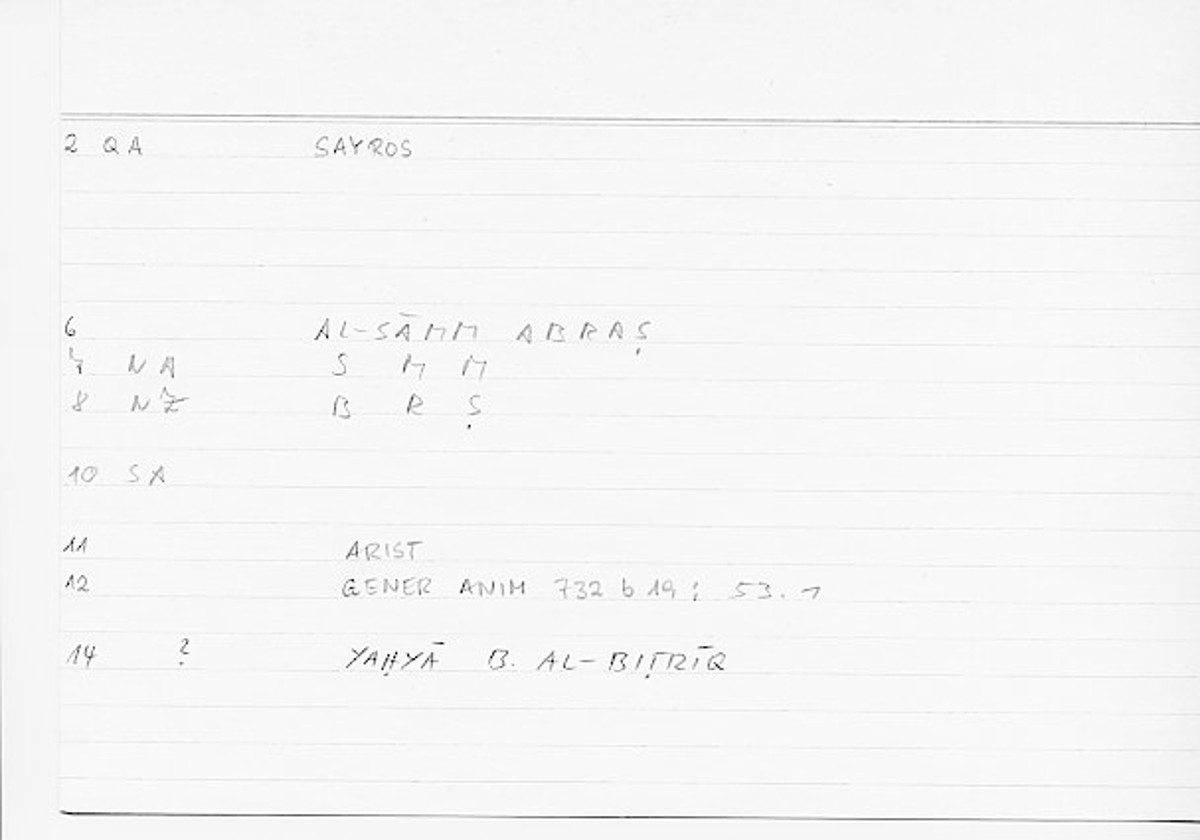 2 QA SAYROS
6 AL-SĀMM ABRAṢ
7 NA S M M
8 NZ B R Ṣ
10 SA
11 ARIST
12 GENER ANIM 732 b 19; 53.1
14 ? YAḤYĀ B. AL-BIṬRĪQ